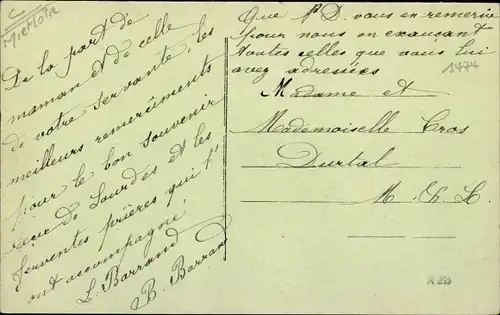 De la part de
maman et de celle
de votre servante, les
meilleurs remerciments
pour le bon souvenir
reçu de Lourdes et les
ferventes prières qui l'
ont accompagné,
L. Barrand
B. Barrand
Que N. D. vous en remercie
pour nous en exauçant
toutes celles que vous lui
avez adressées
Madame et
Mademoiselle Cros
Durtal
M. & L.
1474